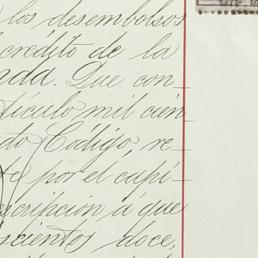 los desembolsos
crédito de la
nda. Que con-
tículo mil cien
do Código, re-
por el capí-
scripcion á que
scientos doce,